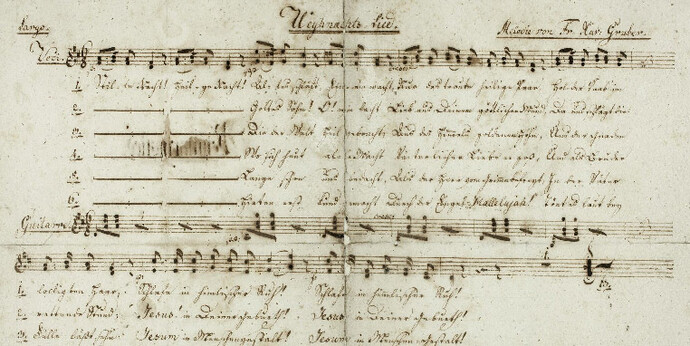 Weyhnachts-Lied.
Largo. Melodie von Fr. Xav. Gruber.
Voci.
1. Stille Nacht! Heilige Nacht! Alles schläft. Einsam wacht. Nur das traute heilige Paar. Holder Knab im
2. Gottes Sohn! O! wie lacht Lieb aus Deinem göttlichen Mund, Da uns schlägt die
3. Die der Welt Heil gebracht, Aus des Himmels goldenen Höhn, Uns der Gnaden
4. Wo sich heut alle Macht Väterlicher Liebe ergoß, Und als Bruder
5. Lange schon uns bedacht, Als der Herr vom Grimme befreyt, In der Väter
6. Hirten erst kund gemacht Durch der Engel Hallelujah! Tönt es laut bey
Guitarre
1. lockigten Haar, Schlafe in himlischer Ruh! Schlafe in himlischer Ruh!
2. rettende Stund, Jesus in Deiner Geburt! Jesus in Deiner Geburt!
3. Fülle läßt sehn, Jesum in Menschengestalt! Jesum in Menschengestalt!